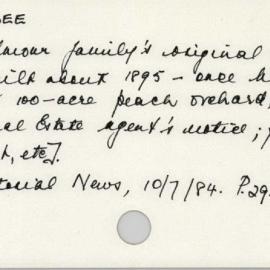 SEE
lmour family's original
uilt about 1895 - once h
100-acre peach orchard,
al Estate agent's notice;
, etc].
torial News, 10/7/84. P.29